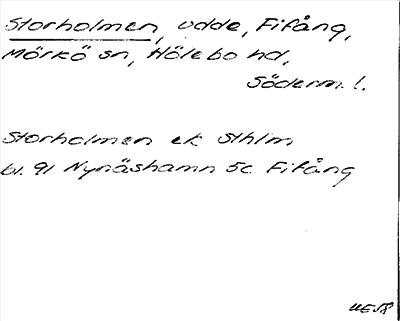 Storholmen, udde, Fifång,
Mörkö sn, Hölebo hd,
Söderm. l.
Storholmen ek Sthlm
bl. 91 Nynäshamn 5c Fifång